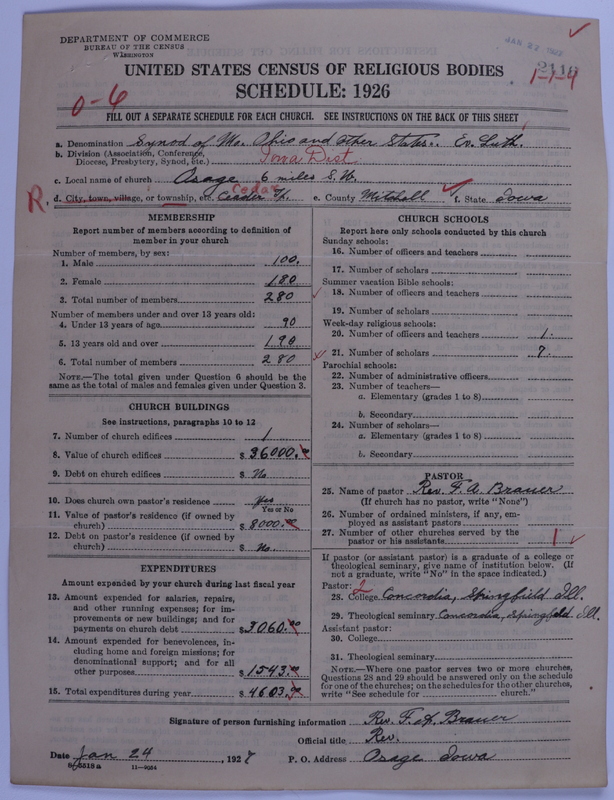 DEPARTMENT OF COMMERCE
BUREAU OF THE CENSUS
WASHINGTON
JAN 27 1927
2118
1-1-4
UNITED STATES CENSUS OF RELIGIOUS BODIES
SCHEDULE: 1926
0-6
FILL OUT A SEPARATE SCHEDULE FOR EACH CHURCH. SEE INSTRUCTIONS ON THE BACK OF THIS SHEET
a. Denomination Synod of Mo. Ohio and other States. Ev. Luth.
b. Division (Association, Conference, Diocese, Presbytery, Synod, etc.) Iowa Dist.
c. Local name of church Osage 6 miles S.W.
R. d. City, town, village, or township, etc. Ceader Cedar e. County Mitchell f. State Iowa
MEMBERSHIP
Report number of members according to definition of
member in your church
Number of members, by sex:
1. Male 100.
2. Female 180
3. Total number of members 280
Number of members under and over 13 years old:
4. Under 13 years of age 90
5. 13 years old and over 190
6. Total number of members 280
NOTE.—The total given under Question 6 should be the
same as the total of males and females given under Question 3.
CHURCH BUILDINGS
See instructions, paragraphs 10 to 12
7. Number of church edifices 1
8. Value of church edifices $ 36000.00
9. Debt on church edifices $ No
10. Does church own pastor's residence Yes
Yes or No
11. Value of pastor's residence (if owned by
church) $ 8000.00
12. Debt on pastor's residence (if owned by
church) $ No.
EXPENDITURES
Amount expended by your church during last fiscal year
13. Amount expended for salaries, repairs,
and other running expenses; for im-
provements or new buildings; and for
payments on church debt $ 3060.00
14. Amount expended for benevolences, in-
cluding home and foreign missions; for
denominational support; and for all
other purposes $ 1543.00
15. Total expenditures during year $ 4603.00
CHURCH SCHOOLS
Report here only schools conducted by this church
Sunday schools:
16. Number of officers and teachers
17. Number of scholars
Summer vacation Bible schools:
18. Number of officers and teachers
19. Number of scholars
Week-day religious schools:
20. Number of officers and teachers 1.
21. Number of scholars 7.
Parochial schools:
22. Number of administrative officers
23. Number of teachers—
a. Elementary (grades 1 to 8)
b. Secondary
24. Number of scholars—
a. Elementary (grades 1 to 8)
b. Secondary
PASTOR
25. Name of pastor Rev. F. A. Brauer
(If church has no pastor, write "None")
26. Number of ordained ministers, if any, em-
ployed as assistant pastors
27. Number of other churches served by the
pastor or his assistants 1
If pastor (or assistant pastor) is a graduate of a college or
theological seminary, give name of institution below. (If
not a graduate, write "No" in the space indicated.)
Pastor: 2
28. College Concordia, Springfield Ill.
29. Theological seminary Concordia, Springfield Ill.
Assistant pastor:
30. College
31. Theological seminary
NOTE.—Where one pastor serves two or more churches,
Questions 28 and 29 should be answered only on the schedule
for one of the churches; on the schedules for the other churches,
write "See schedule for church."
Signature of person furnishing information Rev. F. A. Brauer
Official title Rev.
Date Jan 24, 1927 P. O. Address Osage Iowa
8-5518 a 11—9054